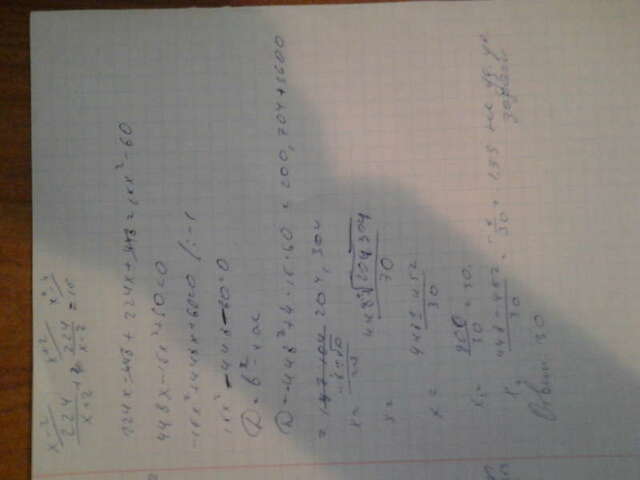 224/(x+2) + 224/(x-2) = 15
224x-448+224x+448=15x²-60
448x-15x²+60=0
-15x²+448x+60=0 /:-1
15x²-448x-60=0
D=b²-4ac
D=448²+4·15·60=200,704+3600
=204,304
x=
x= 448±√204304 / 30
x= 448±452 / 30
x₁= 900/30 =30
x₂= 448-452 / 30 = -4/30 =
Ответ 30